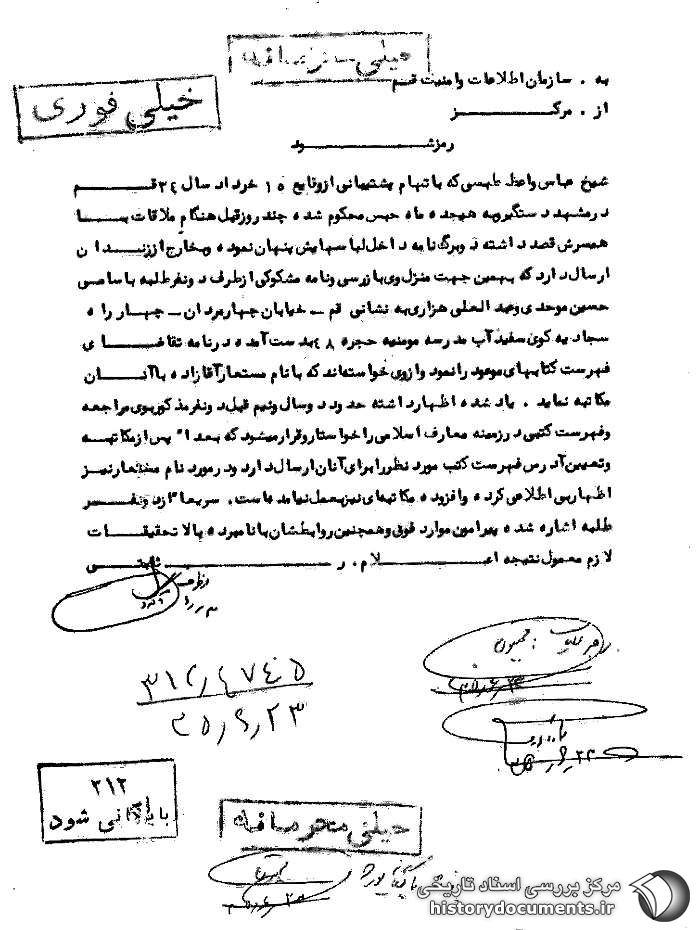 خیلی محرمانه
خیلی فوری
به . سازمان اطلاعات وامنیت قم
از . مرکز
رمز شود
شیخ عباس واعظ طبسی که با تهام پشتیبانی ازوقایع ۱۵ خرداد سال ۳٤ قم
درمشهد دستگیروبه هیجده ماه حبس محکوم شده چند روزقبل هنگام ملاقات با
همسرش قصد داشته دوبرگ نامه داخل لباسهایش پنهان نموده وبخارج اززندان
ارسال دارد که بهمین جهت منزل وی بازرسی ونامه مشکوکی ازطرف دونفرطلبه باسامی
حسین موحدی وعبد العلی هزاری به نشانی قم - خیابان چهارمردان - چهارراه
سجادیه کوی سفیدآب مدرسه مومنیه حجره ٤۸ بدست آمده درنامه تقاضای
فهرست کتابهای موعود رانمود وازوی خواسته اند که بانام مستعارآقازاده باآنان
مکاتبه نماید . یاد شده اظهارداشته حدود دوسال ونیم قبل دونفرمذکوربوی مراجعه
وفهرست کتبی درزمینه معارف اسلامی راخواستاروقرارمیشود که بعدا" پس ازمکاتبه
وتعیین آدرس فهرست کتب مورد نظررابرای آنان ارسال دارد ودرمورد نام مستعارنیز
اظهاربی اطلاعی کرده وافزوده مکاتبه ای نیزبعمل نیامده است. سریعا" ازدونفر
طلبه اشاره شده پیرامون موارد فوق وهمچنین روابطشان بانامبرده بالا تحقیقات
لازم معمول نتیجه اعلام. ثابتی
۳۱۲/٤۷٤۵
۳۵/۶/۲۳
۲۱۲
بایگانی شود
خیلی محرمانه
مرکز بررسی اسناد تاریخی
historydocuments.ir